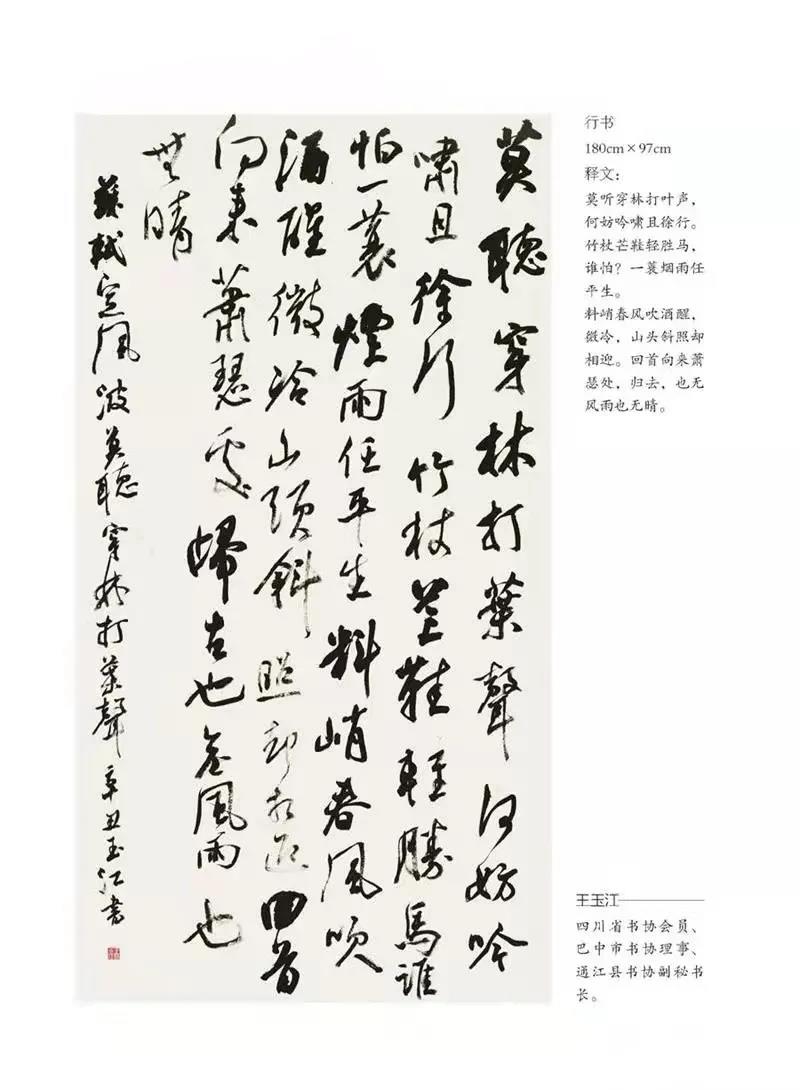 莫聽穿林打葉聲何妨吟
嘯且徐行竹杖芒鞋輕勝馬誰
怕一蓑煙雨任平生料峭春風吹
酒醒微冷山頭斜照却相迎回首
向来蕭瑟處歸去也無風雨也
無晴
蘇軾定風波莫聽穿林打葉聲辛丑玉江書
行书
180cm×97cm
释文：
莫听穿林打叶声，
何妨吟啸且徐行。
竹杖芒鞋轻胜马，
谁怕？一蓑烟雨任
平生。
料峭春风吹酒醒，
微冷，山头斜照却
相迎。回首向来萧
瑟处，归去，也无
风雨也无晴。
王玉江
四川省书协会员、
巴中市书协理事、
通江县书协副秘书
长。